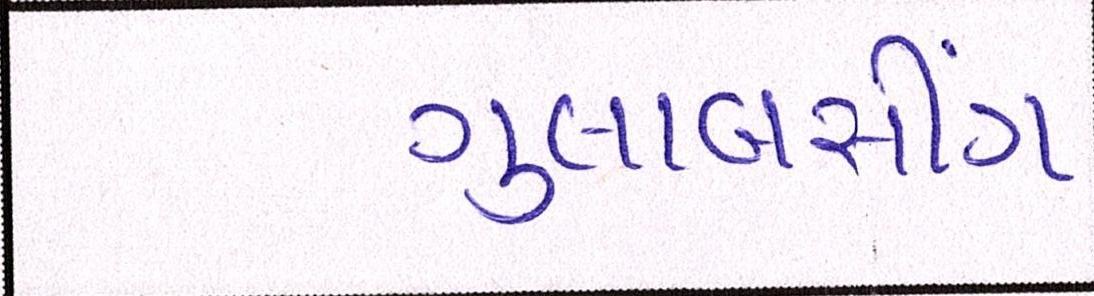 ગુલાબસીંગ